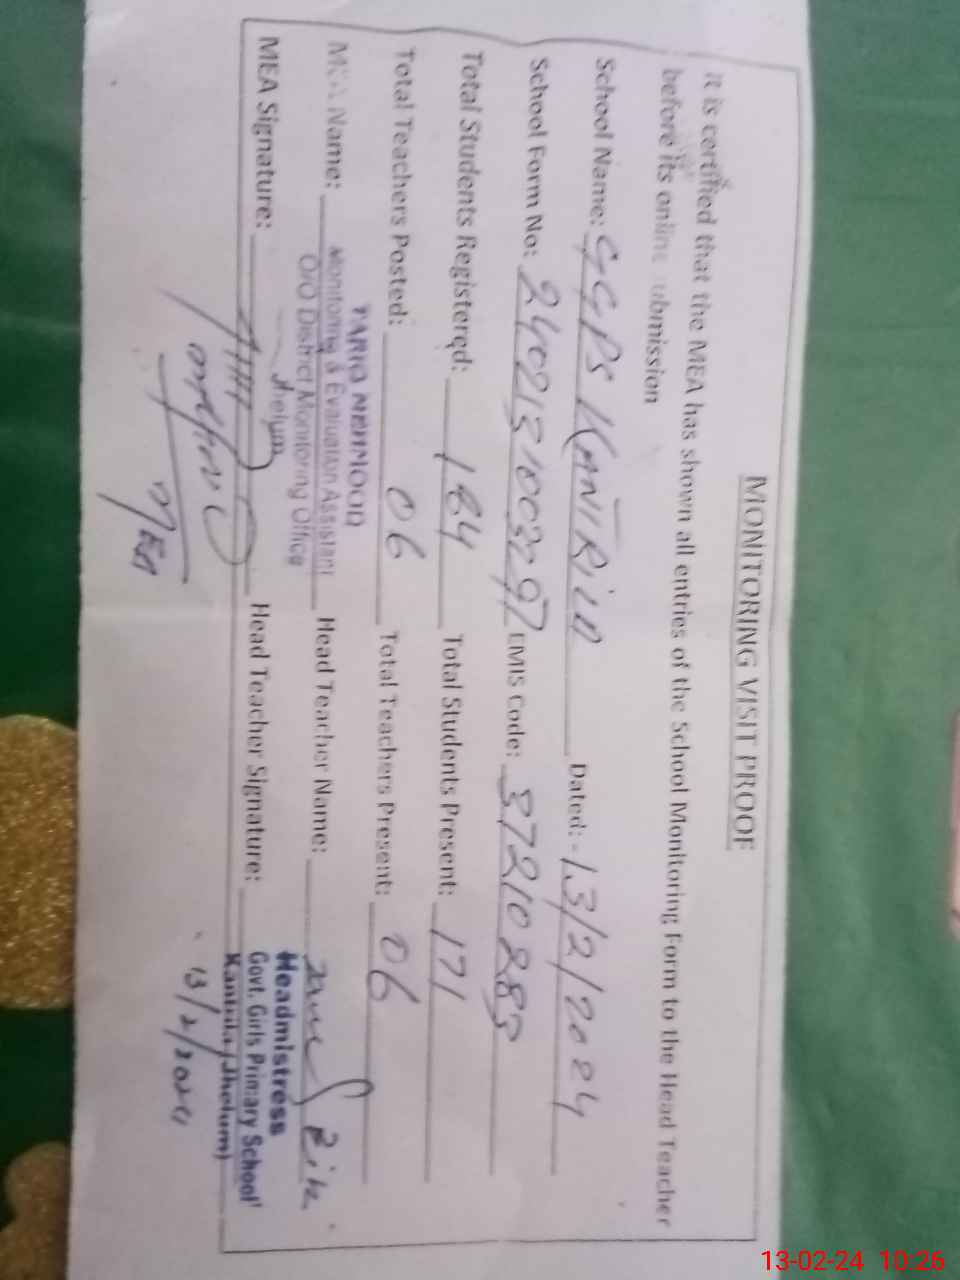 MONITORING VISIT PROOF
It is certified that the MEA has shown all entries of the School Monitoring Form to the Head Teacher
before its online submission
School Name: GGPS KANTRILA Dated: 13/2/2024
School Form No: EMIS Code: 37210285
Total Students Registered: 184 Total Students Present: 171
Total Teachers Posted: 06 Total Teachers Present: 06
TARIQ MEHMOOD
MEA Name: Monitoring & Evaluation Assistant Head Teacher Name:
O/O District Monitoring Office
Jhelum
MEA Signature: Head Teacher Signature:
Headmistress
Govt. Girls Primary School
Kantrila (Jhelum)
MEA
13/2/2024
13-02-24 10:26